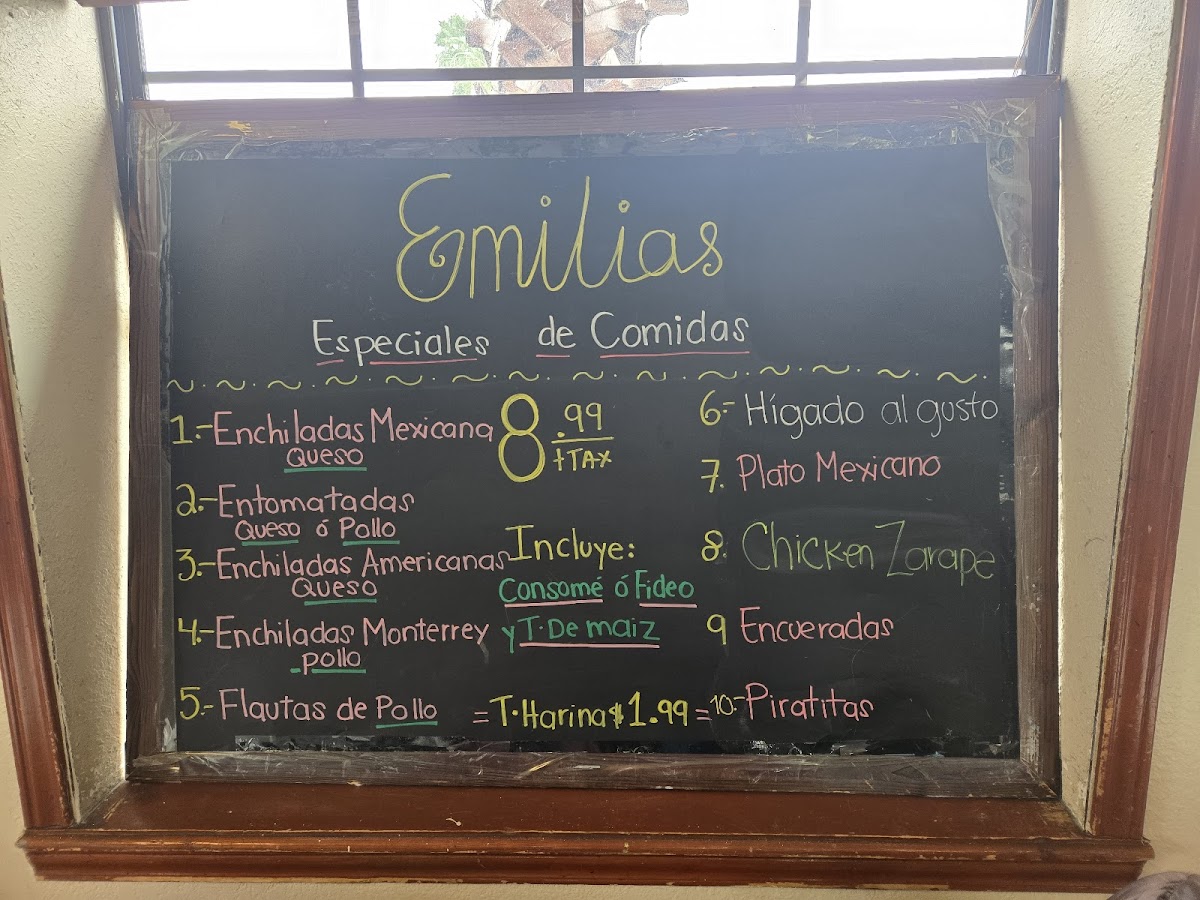 Emilias
Especiales de Comidas
1.- Enchiladas Mexicana
Queso
2.- Entomatadas
Queso ó Pollo
3.- Enchiladas Americanas
Queso
4.- Enchiladas Monterrey
pollo
5.- Flautas de Pollo
8.99
+TAX
Incluye:
Consomé ó Fideo
y T. De maiz
=T. Harina $1.99=
6.- Hígado al gusto
7. Plato Mexicano
8. Chicken Zarape
9 Encueradas
10.- Piratitas